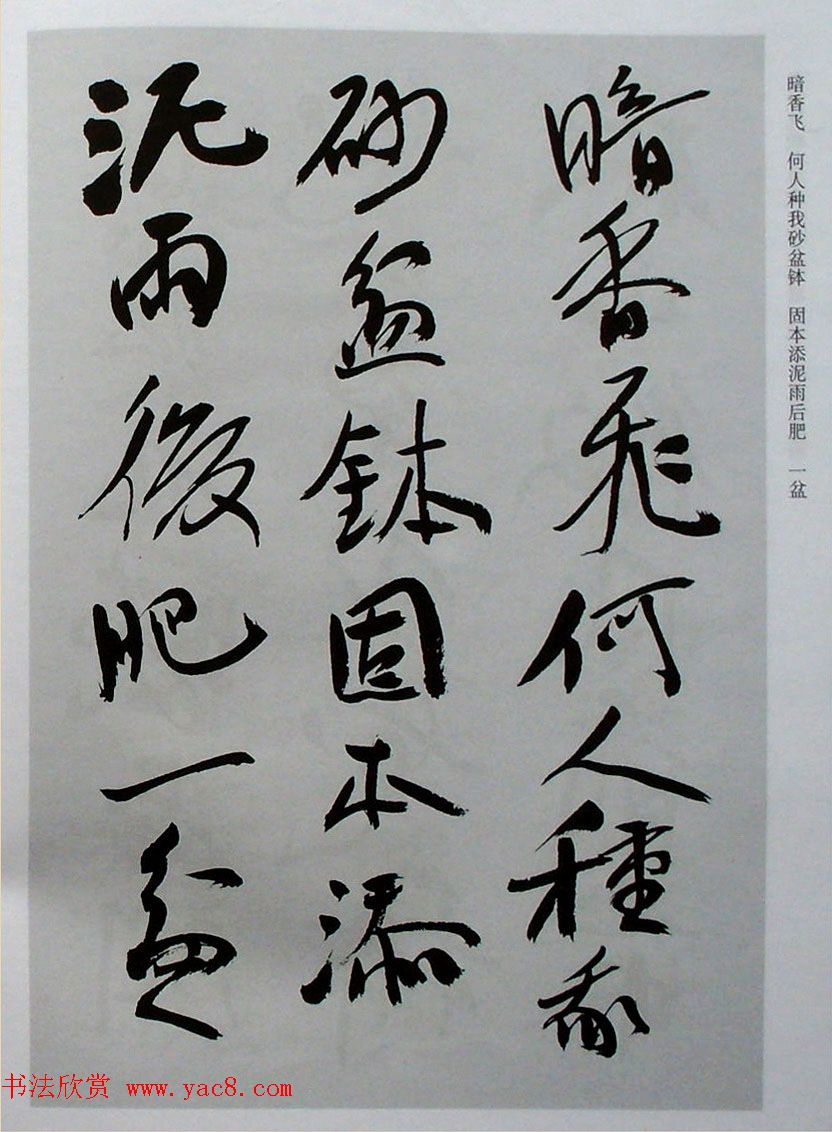 暗香飞　何人种我砂盆钵　固本添泥雨后肥　一盆
暗香飛何人種我
砂盆鉢固本添
泥雨後肥一盆
书法欣赏 www.yac8.com